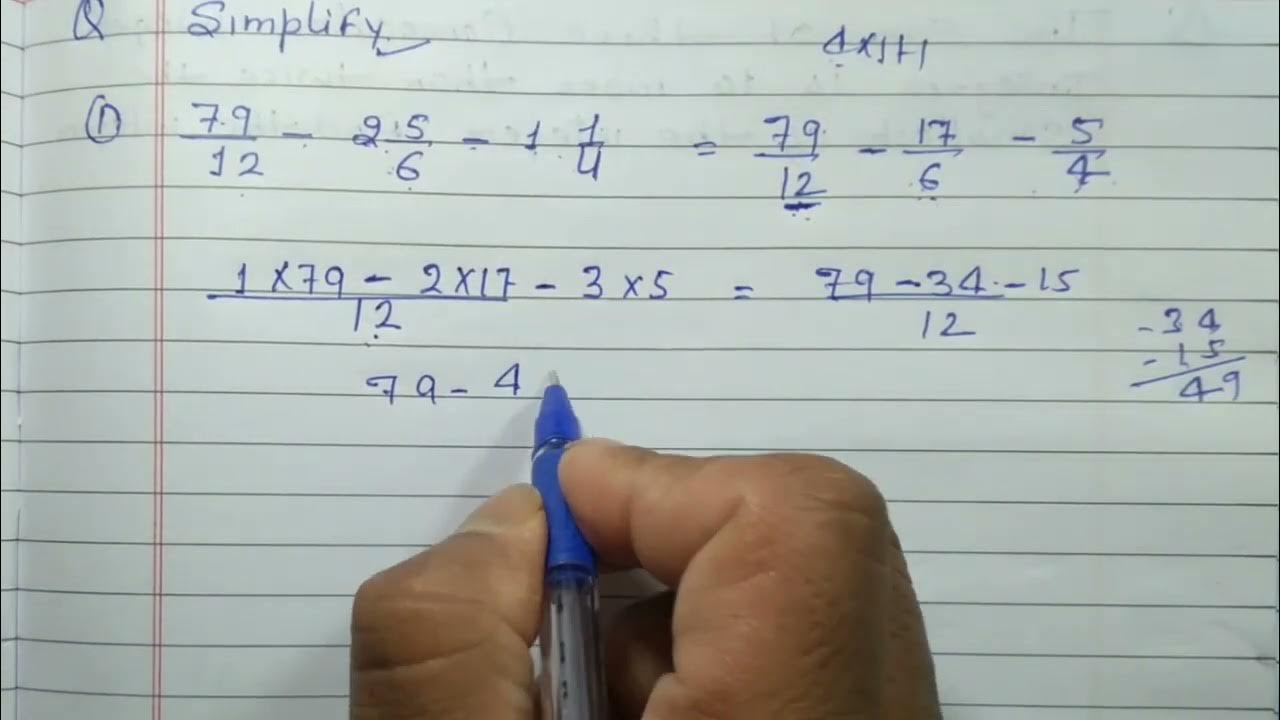 Q Simplify
4×1+1
① 79/12 - 2 5/6 - 1 1/4 = 79/12 - 17/6 - 5/4
1×79 - 2×17 - 3×5 / 12 = 79 - 34 - 15 / 12
-34
-15
49
79 - 4